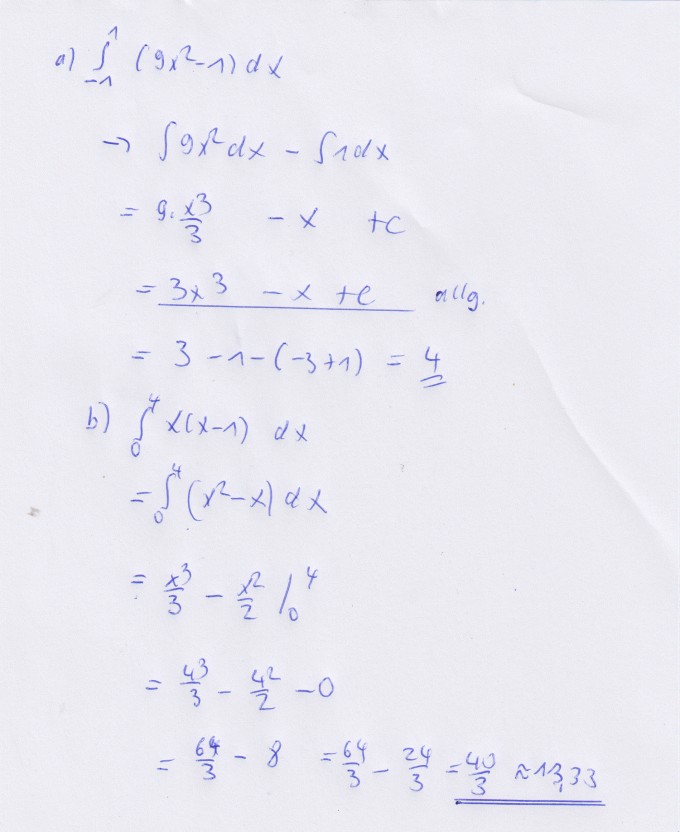 a) ∫₋₁¹ (9x²-1) dx
→ ∫9x²dx - ∫1dx
= 9·x³/3 - x + c
= 3x³ - x + c allg.
= 3 - 1 - (-3+1) = 4
b) ∫₀⁴ x(x-1) dx
= ∫₀⁴ (x²-x) dx
= x³/3 - x²/2 |₀⁴
= 4³/3 - 4²/2 - 0
= 64/3 - 8 = 64/3 - 24/3 = 40/3 ≈ 13,33